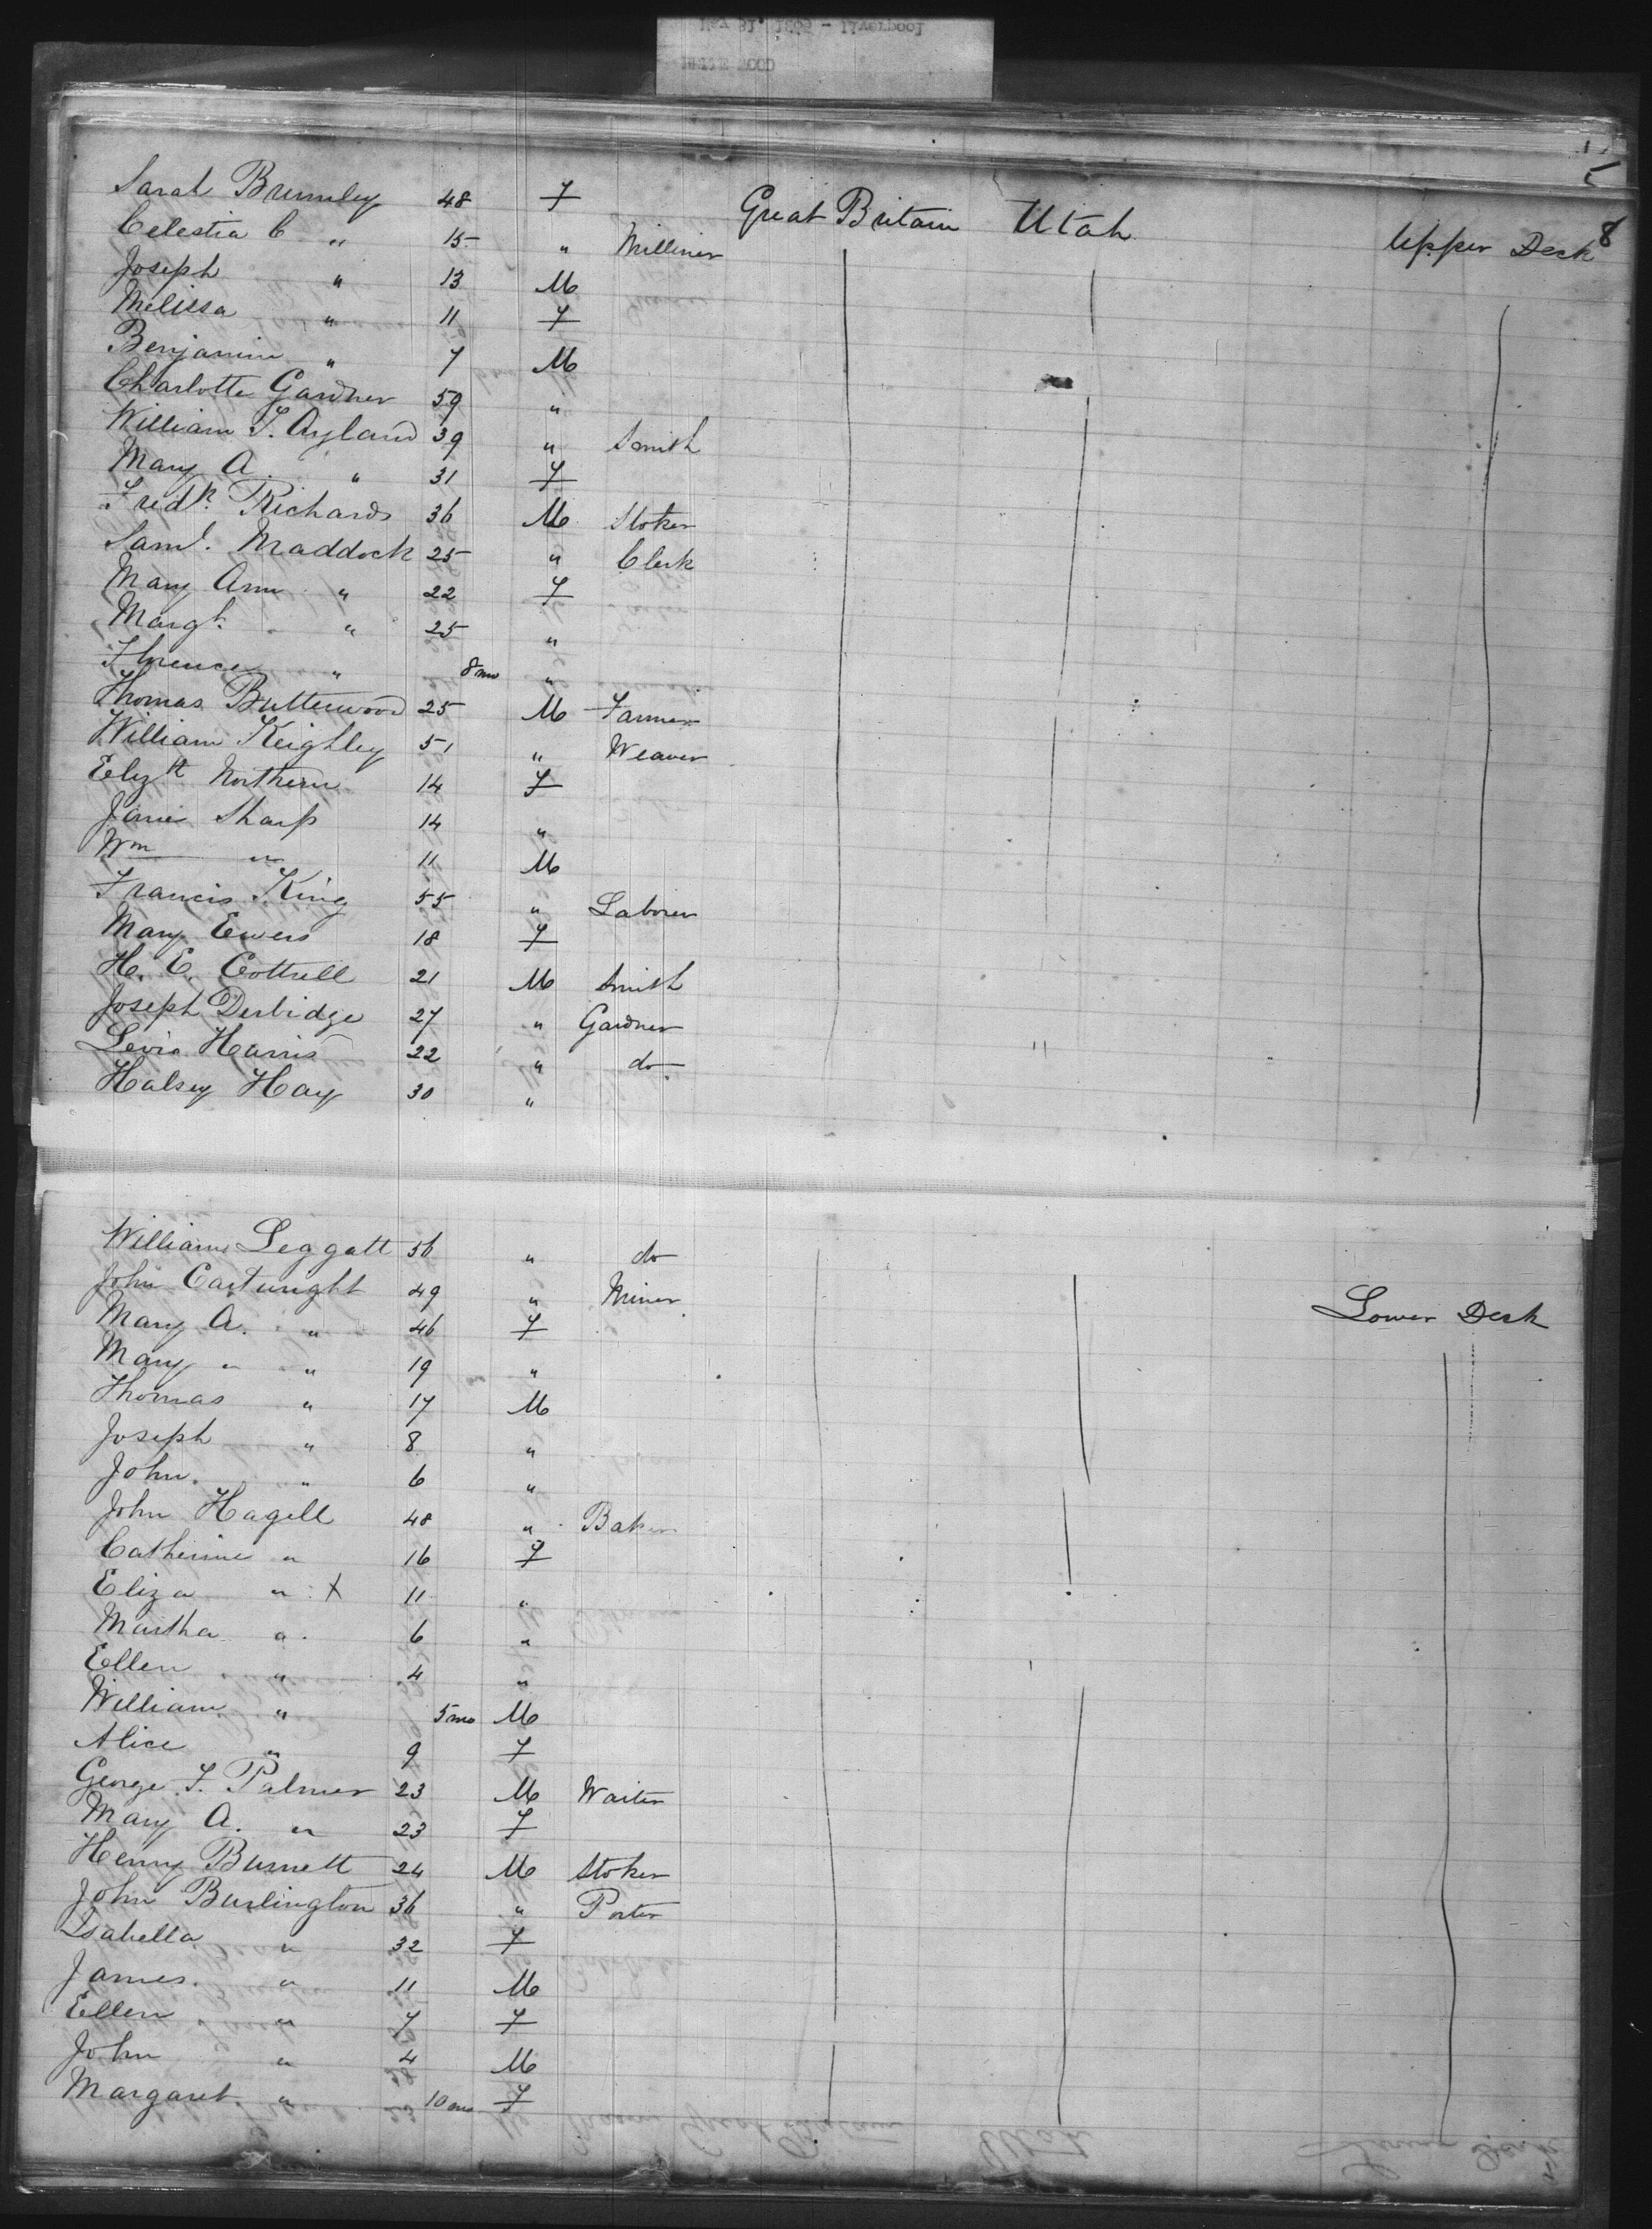 8
Sarah Brumley 48 F Great Britain Utah Upper Deck
Celestia C " 15 " Milliner
Joseph " 13 M
Melissa " 11 F
Benjamin " 7 M
Charlotte Gardner 59 "
William T. Ayland 39 " Smith
Mary A. " 31 F
Fredk. Richards 36 M Stoker
Saml. Maddock 25 " Clerk
Mary Ann " 22 F
Margt. " 25 "
Florence " 8 mo "
Thomas Butterwood 25 M Farmer
William Keighley 51 " Weaver
Elizth Northern 14 F
Jane Sharp 14 "
Wm " 11 M
Francis King 55 " Laborer
Mary Ewers 18 F
H. E. Cottrell 21 M Smith
Joseph Derbidge 27 " Gardner
Levis Harris 22 " do.
Halsey Hay 30 "
William Leggatt 56 " do
John Cartwright 49 " Miner Lower Deck
Mary A. " 46 F
Mary " " 19 "
Thomas " 17 M
Joseph " 8 "
John. " 6 "
John Hagell 48 " Baker
Catherine " 16 F
Eliza " X 11 "
Martha " 6 "
Ellen " 4 "
William " 5 mo M
Alice " 9 F
George T. Palmer 23 M Waiter
Mary A. " 23 F
Henry Burnett 24 M Stoker
John Burlington 36 " Porter
Isabella " 32 F
James. " 11 M
Ellen " 7 F
John " 4 M
Margaret " 10 mo F